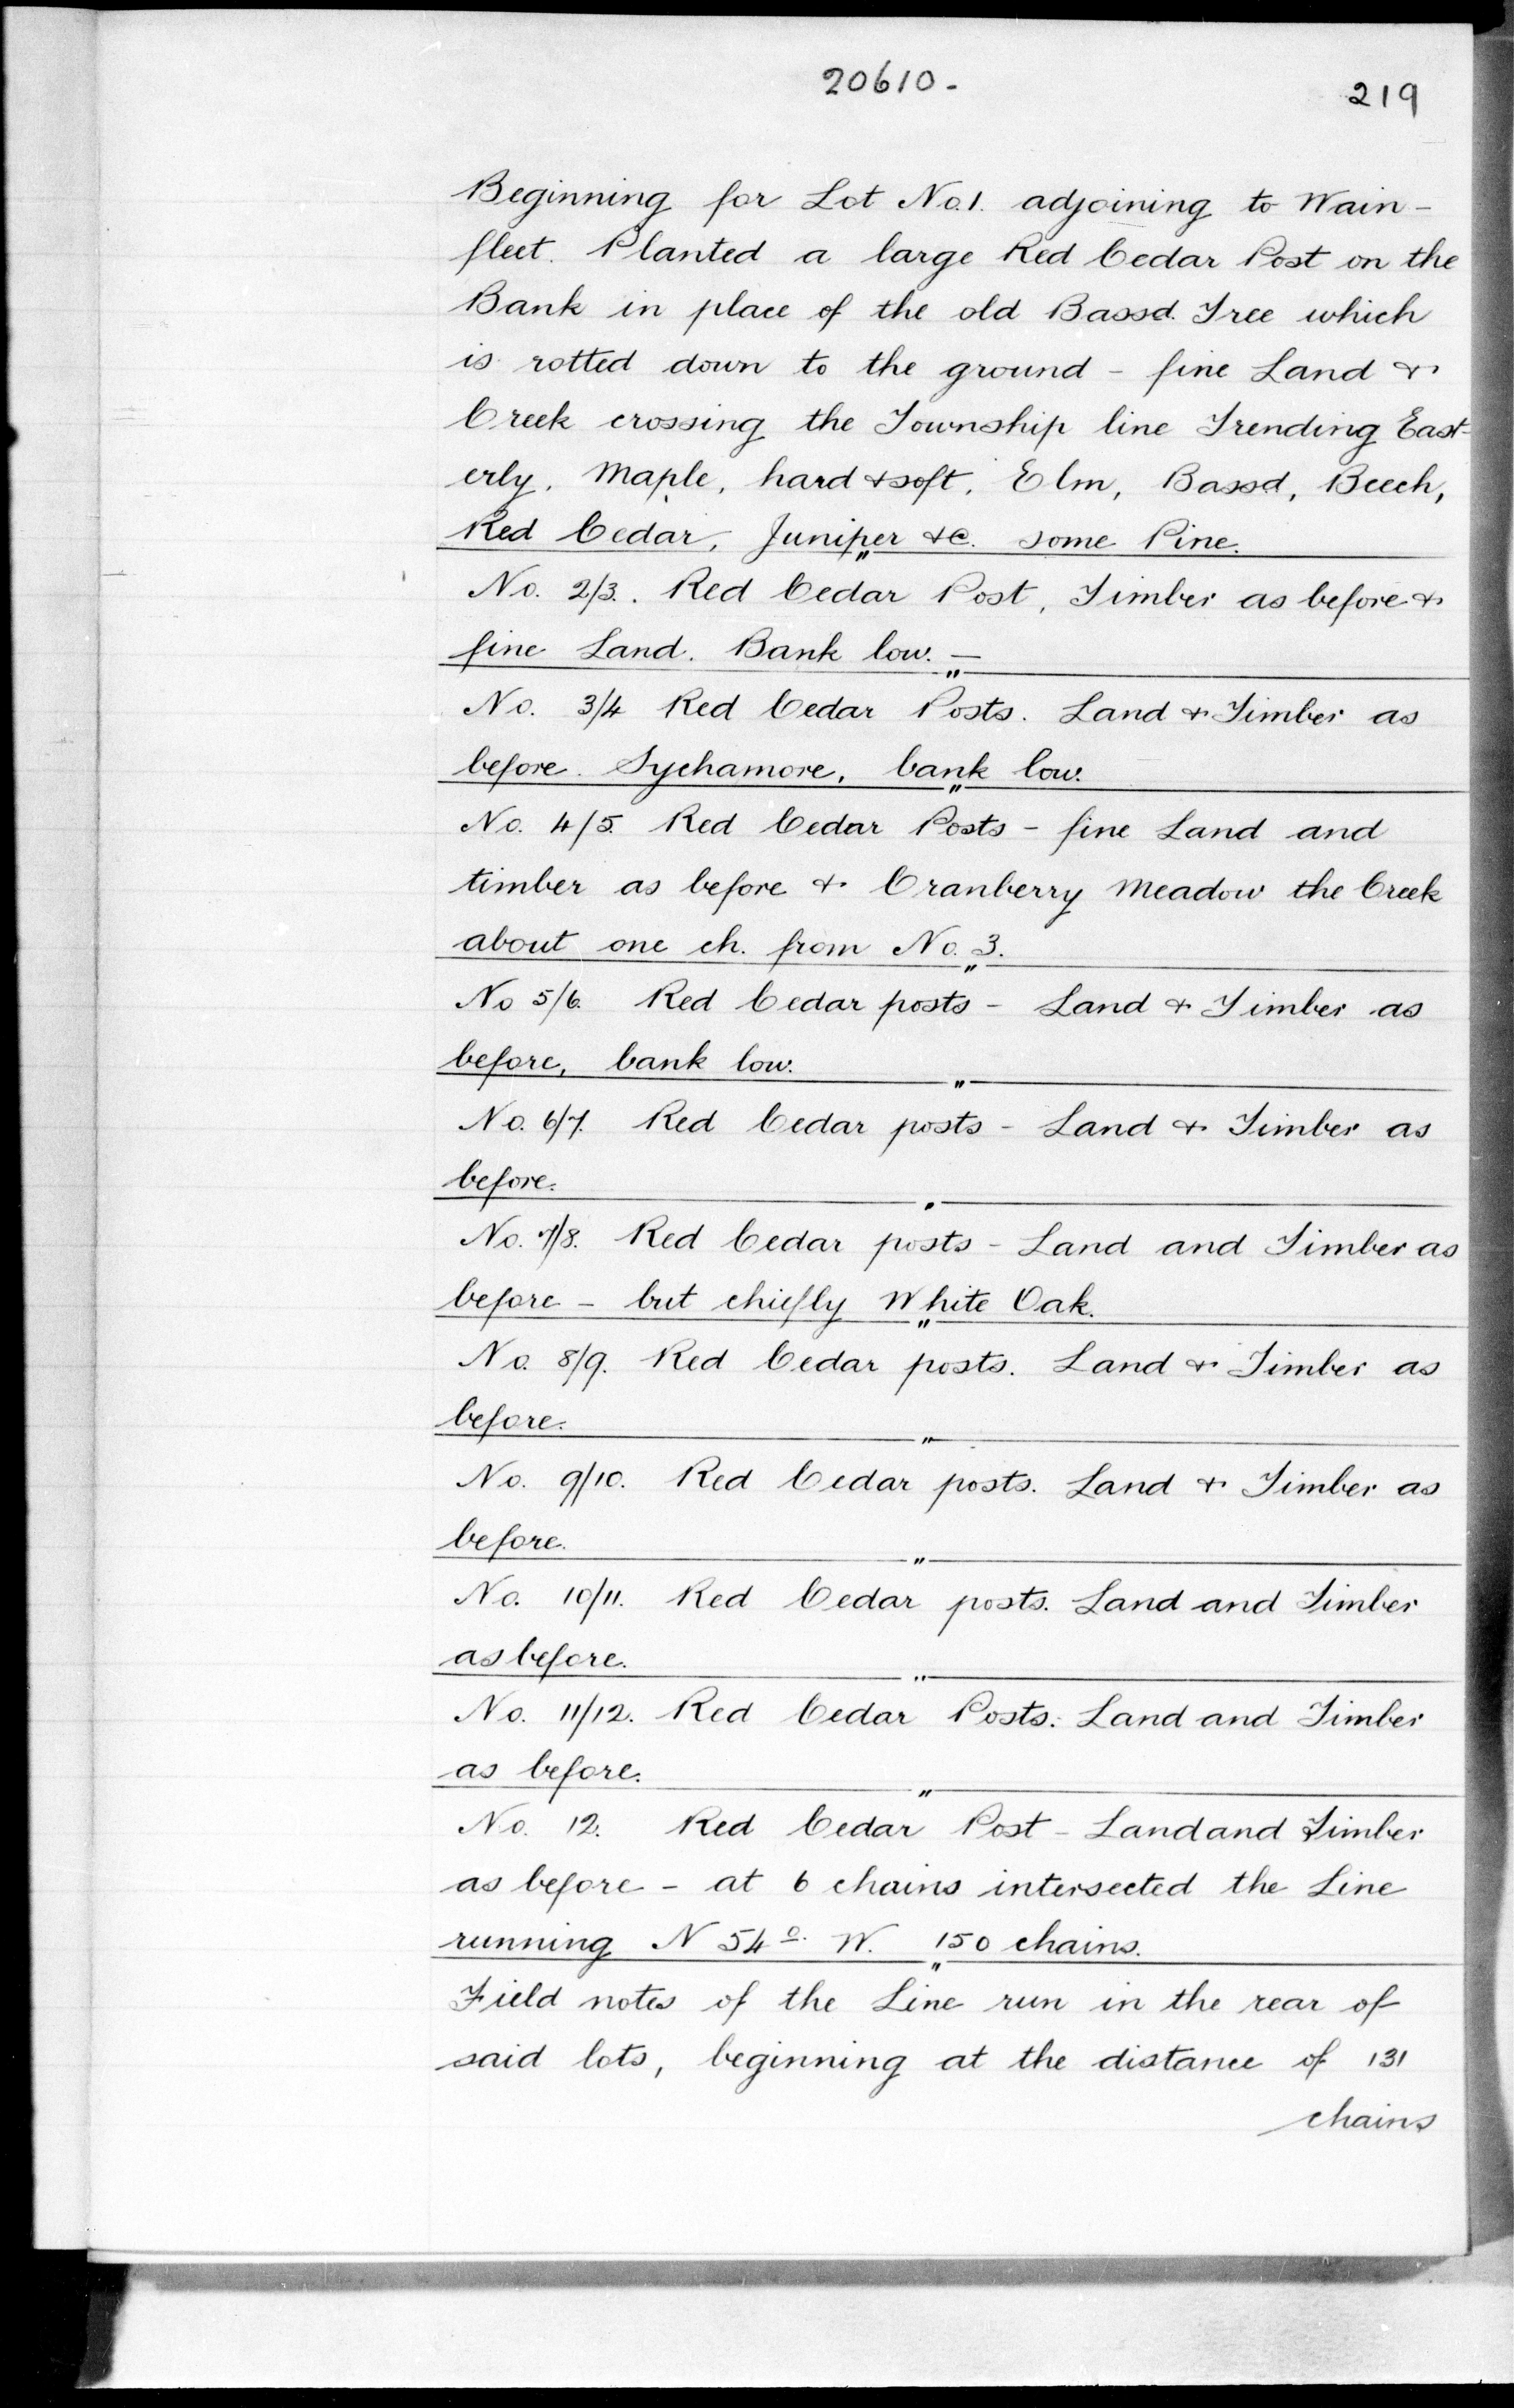 20610-
219
Beginning for Lot No.1. adjoining to Wain-
fleet. Planted a large Red Cedar Post on the
Bank in place of the old Bassd. Tree which
is rotted down to the ground - fine Land &
Creek crossing the Township line Trending East-
erly. Maple, hard & soft. Elm, Bassd, Beech,
Red Cedar, Juniper &c. some Pine.
"
No. 2/3. Red Cedar Post, Timber as before &
fine Land. Bank low. -
"
No. 3/4 Red Cedar Posts. Land & Timber as
before. Sychamore, bank low.
"
No. 4/5. Red Cedar Posts - fine Land and
timber as before & Cranberry Meadow the Creek
about one ch. from No. 3.
"
No 5/6. Red Cedar posts - Land & Timber as
before, bank low.
"
No. 6/7. Red Cedar posts - Land & Timber as
before.
No. 7/8. Red Cedar posts - Land and Timber as
before - but chiefly White Oak.
"
No. 8/9. Red Cedar posts. Land & Timber as
before.
"
No. 9/10. Red Cedar posts. Land & Timber as
before.
"
No. 10/11. Red Cedar posts. Land and Timber
as before.
"
No. 11/12. Red Cedar Posts. Land and Timber
as before.
"
No. 12. Red Cedar Post - Land and Timber
as before - at 6 chains intersected the Line
running N 54º. W. 150 chains.
"
Field notes of the Line run in the rear of
said lots, beginning at the distance of 131
chains